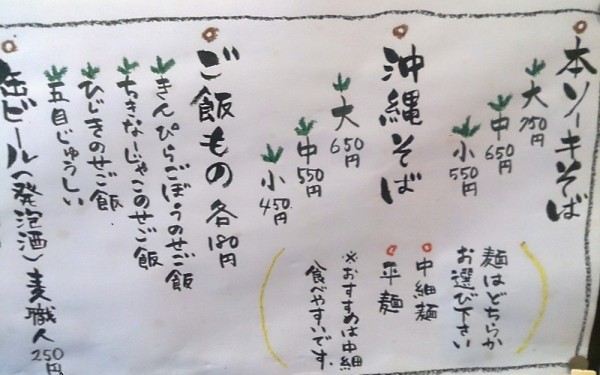 本ソーキそば
大 750円
中 650円
小 550円
麺はどちらか
お選び下さい
中細麺
平麺
※おすすめは中細
食べやすいです。
沖縄そば
大 650円
中 550円
小 450円
ご飯もの 各180円
きんぴらごぼうのせご飯
ちきなーじゃこのせご飯
ひじきのせご飯
五目じゅうしい
缶ビール(発泡酒)麦職人 250円